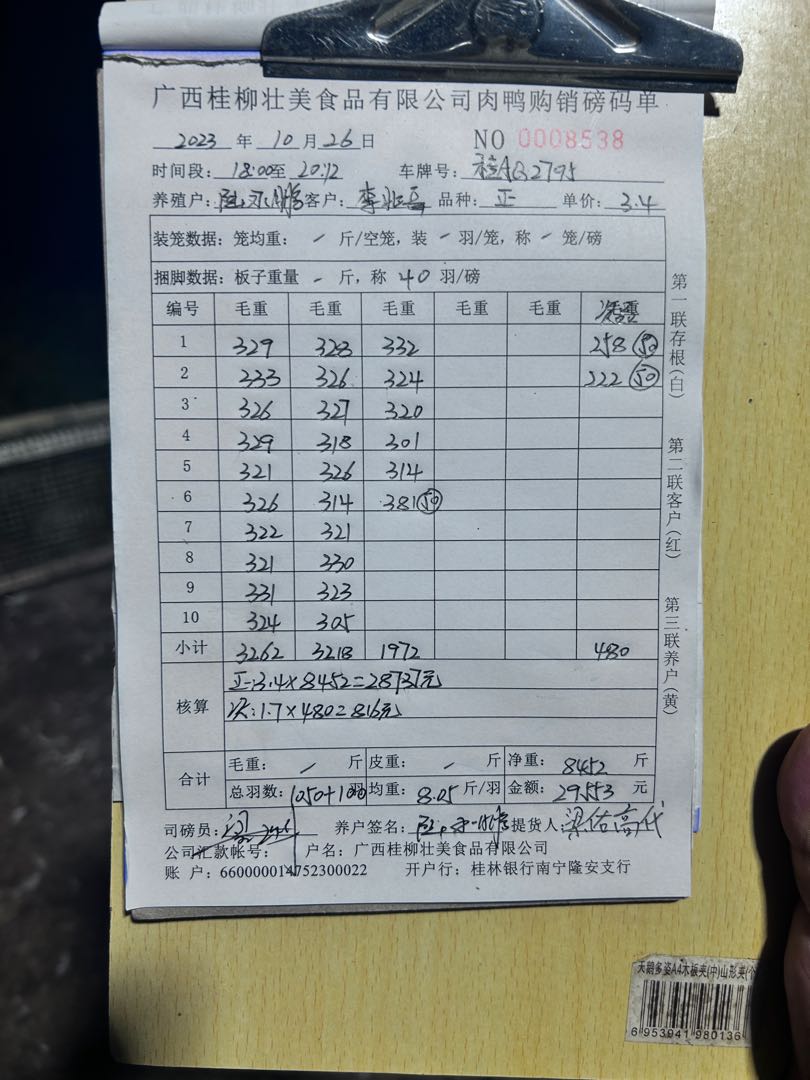 广西桂柳壮美食品有限公司肉鸭购销磅码单
2023 年 10 月 26 日 NO 0008538
时间段: 18:00至 20:12 车牌号: 桂AQ2795
养殖户: 客户: 品种: 正 单价: 3.4
装笼数据: 笼均重: - 斤/空笼, 装 - 羽/笼, 称 - 笼/磅
捆脚数据: 板子重量 - 斤, 称 40 羽/磅
编号 毛重 毛重 毛重 毛重 毛重
1 329 328 332 258 (50)
2 333 326 324 222 (50)
3 326 327 320
4 329 318 301
5 321 326 314
6 326 314 381 (50)
7 322 321
8 321 330
9 331 323
10 324 305
小计 3262 3218 1972 480
核算
正:3.4×8452=28737元
次:1.7×480=816元
合计
毛重: - 斤 皮重: - 斤 净重: 8452 斤
总羽数: 1050+100羽 均重: 8.05 斤/羽 金额: 29553 元
司磅员: 养户签名: 提货人:
公司汇款帐号: 户名: 广西桂柳壮美食品有限公司
账 户: 660000014752300022 开户行: 桂林银行南宁隆安支行
第一联存根(白)
第二联客户(红)
第三联养户(黄)
天鹅多姿A4木板夹(中)山形夹(个
6 953941 980136